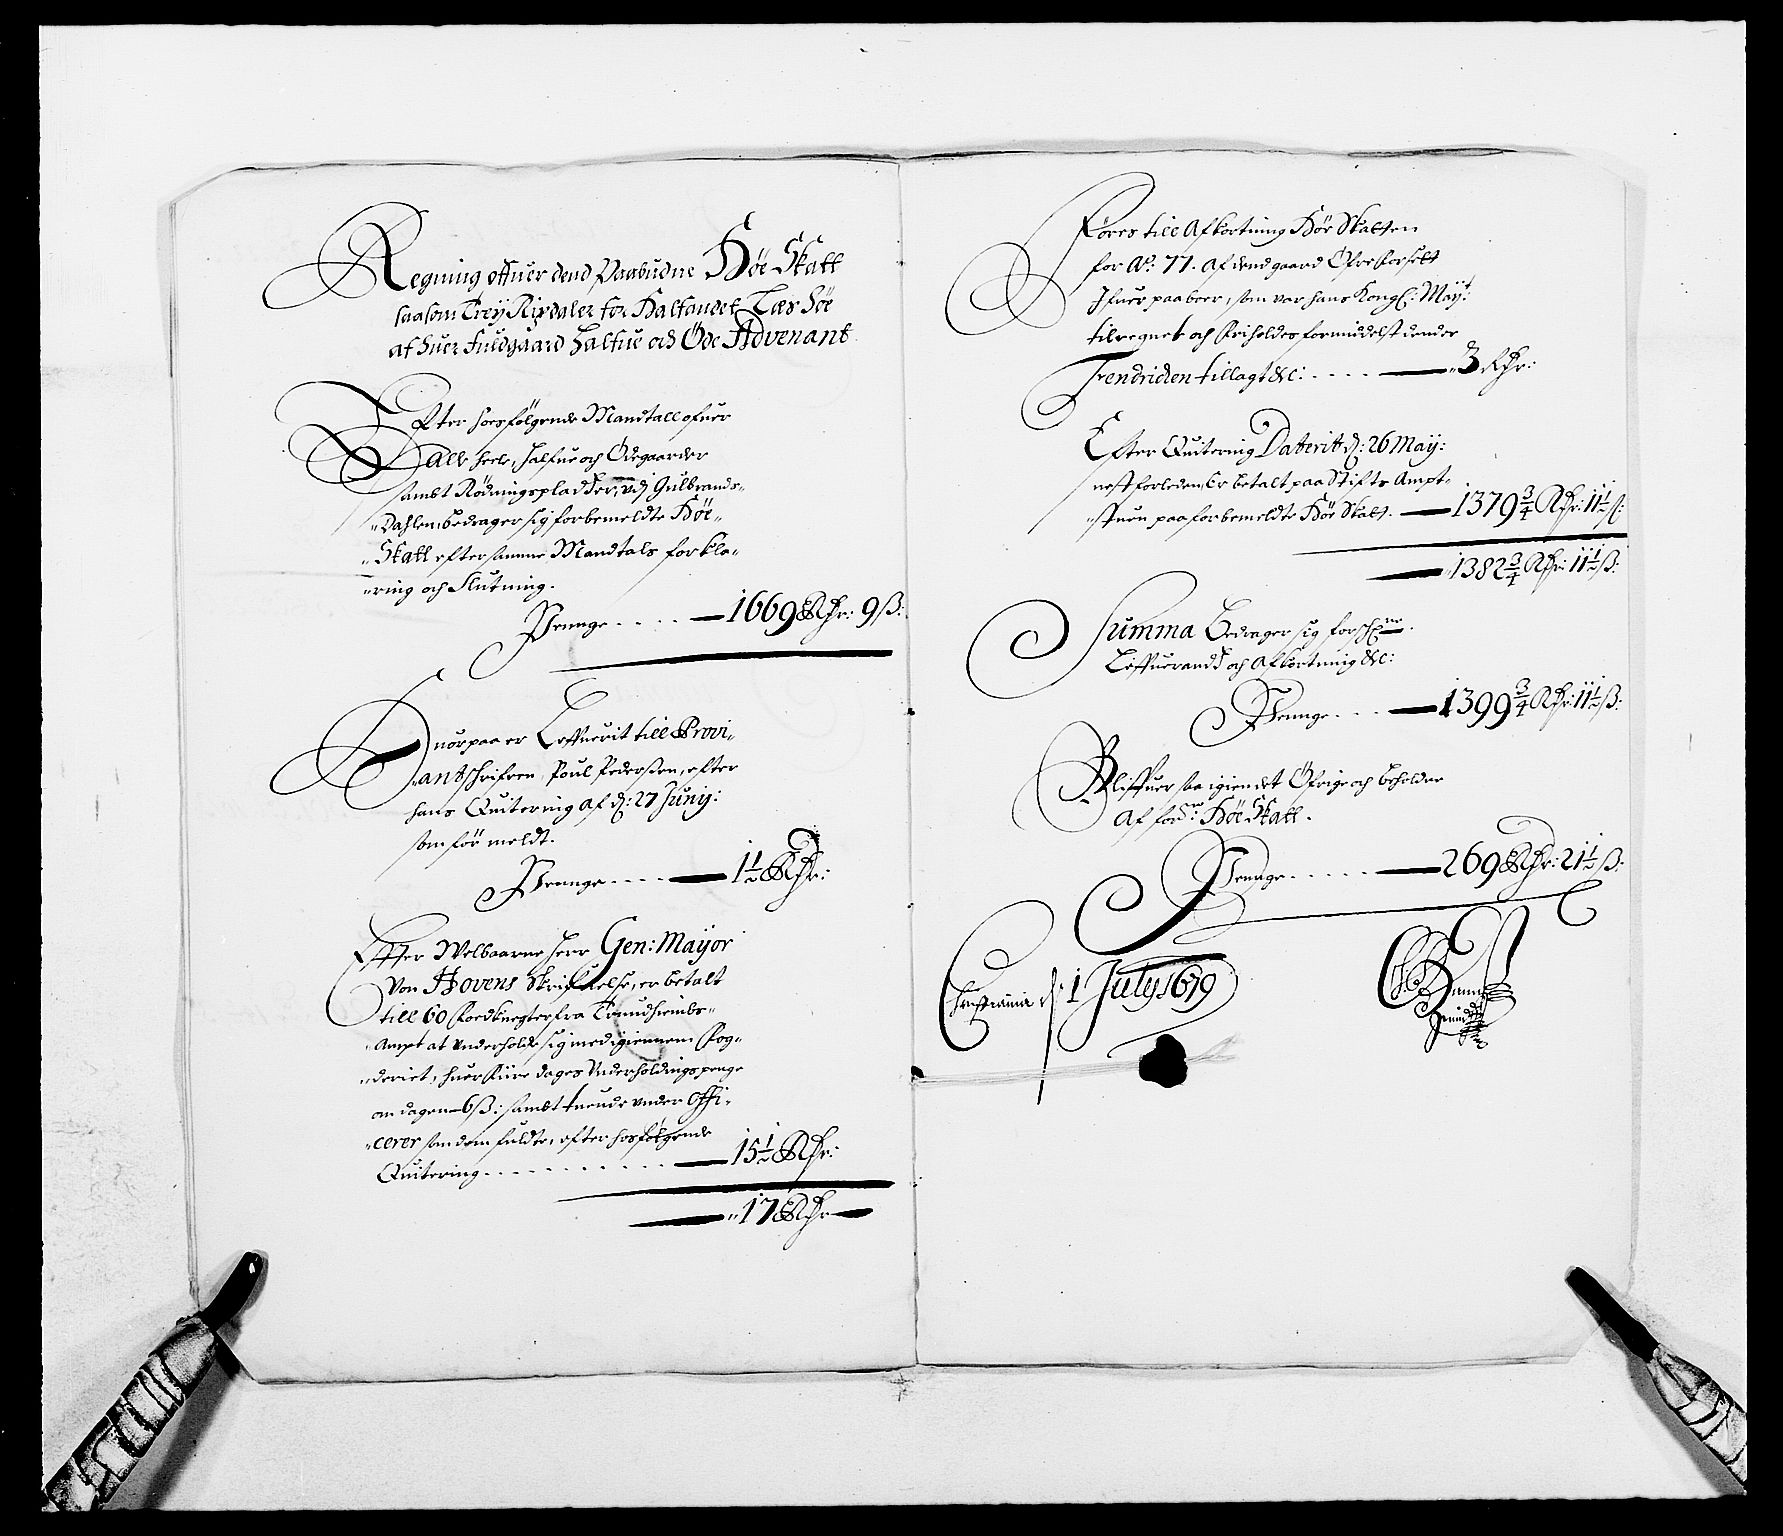 Regning offuer dend Paabudne Höe Skatt
saasom Treÿ Rixdaler for Halfandet Læs höe
af huer fuldgaard halfue och Öde Advenant
Efter hoesfölgende Mandtall ofuer
Alle heele, halfue och Ödegaarder
sambt Rödningspladder, vdj Gulbrands-
Dahlen, bedrager sig forbemeldte Höe-
Skatt efter samme Mandtals forkla-
ring och Slutning.
Penge . . . . — 1669 Rdr: 9 ß:
Huorpaa er Leffuerit till Provi-
antschrifuen, Poul Pederßen, efter
hans Quitering af d: 27 Junij:
som för meldt.
Penge . . . . — 1½ Rdr:
Effter Welbaarne Herr Gen: Mayor
Von Hovens Skrifuelse, er betalt
till 60 Foedknegter fra Trundhiembs-
Ampt at vnderholde sig med igiennem Fog-
deriet, huer Fiire dages Vnderholdings penge
om dagen 6 ß: sambt tuende vnder Offi-
cerer som dem fuldte, efter hosfölgende
Quitering . . . . . . . . . . . . — 15½ Rdr:
— 17 Rdr —
Föres till Afkortning Höe Skatten
for Aº: 77. af dend gaard Öfre Forset
Ifuer paaboer, som var hans Kongl: Maÿt:
tilregnet och Friholdes formiddelst under
Trendridien tillagt &c: . . . . — 3 Rdr:
Efter Quitering Daterit d: 26 May:
nest forleden, Er betalt paa Stifts Ampt-
stuen paa forbemeldte Höe Skatt. — 1379¾ Rdr: 11½ ß:
— 1382¾ Rdr: 11½ ß:
Summa Bedrager sig forschne
Leffuerandz och Afkortning &c:
Penge . . . — 1399¾ Rdr: 11½ ß:
Bliffuer saa igien det Öfrige och beholden
Af forne: Höe Skatt.
Penge . . . . . — 269 Rdr: 21½ ß:
Christiania d: 1 July 1679